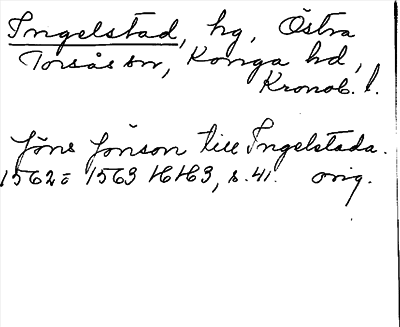 Ingelstad, hg, Östra
Torsås sn, Konga hd,
Kronob. l.
Jöns Jönson till Ingelstada.
1562 = 1563 16163, s. 41. orig.